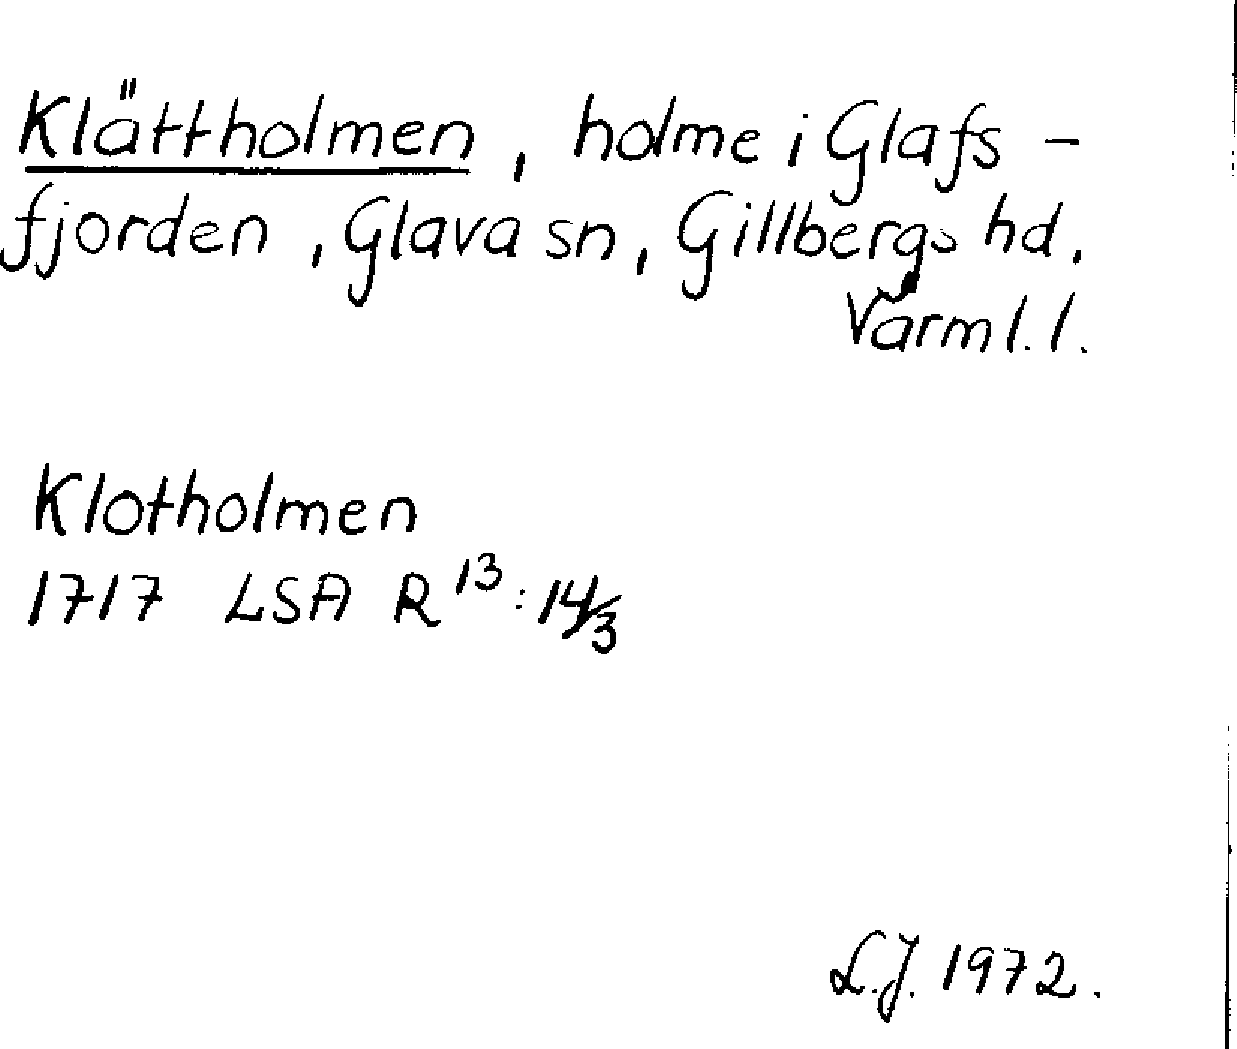 Klättholmen, holme i Glafs-
fjorden, Glava sn, Gillbergs hd,
Värml. l.
Klotholmen
1717 LSA R 13:14/3
L.J. 1972.